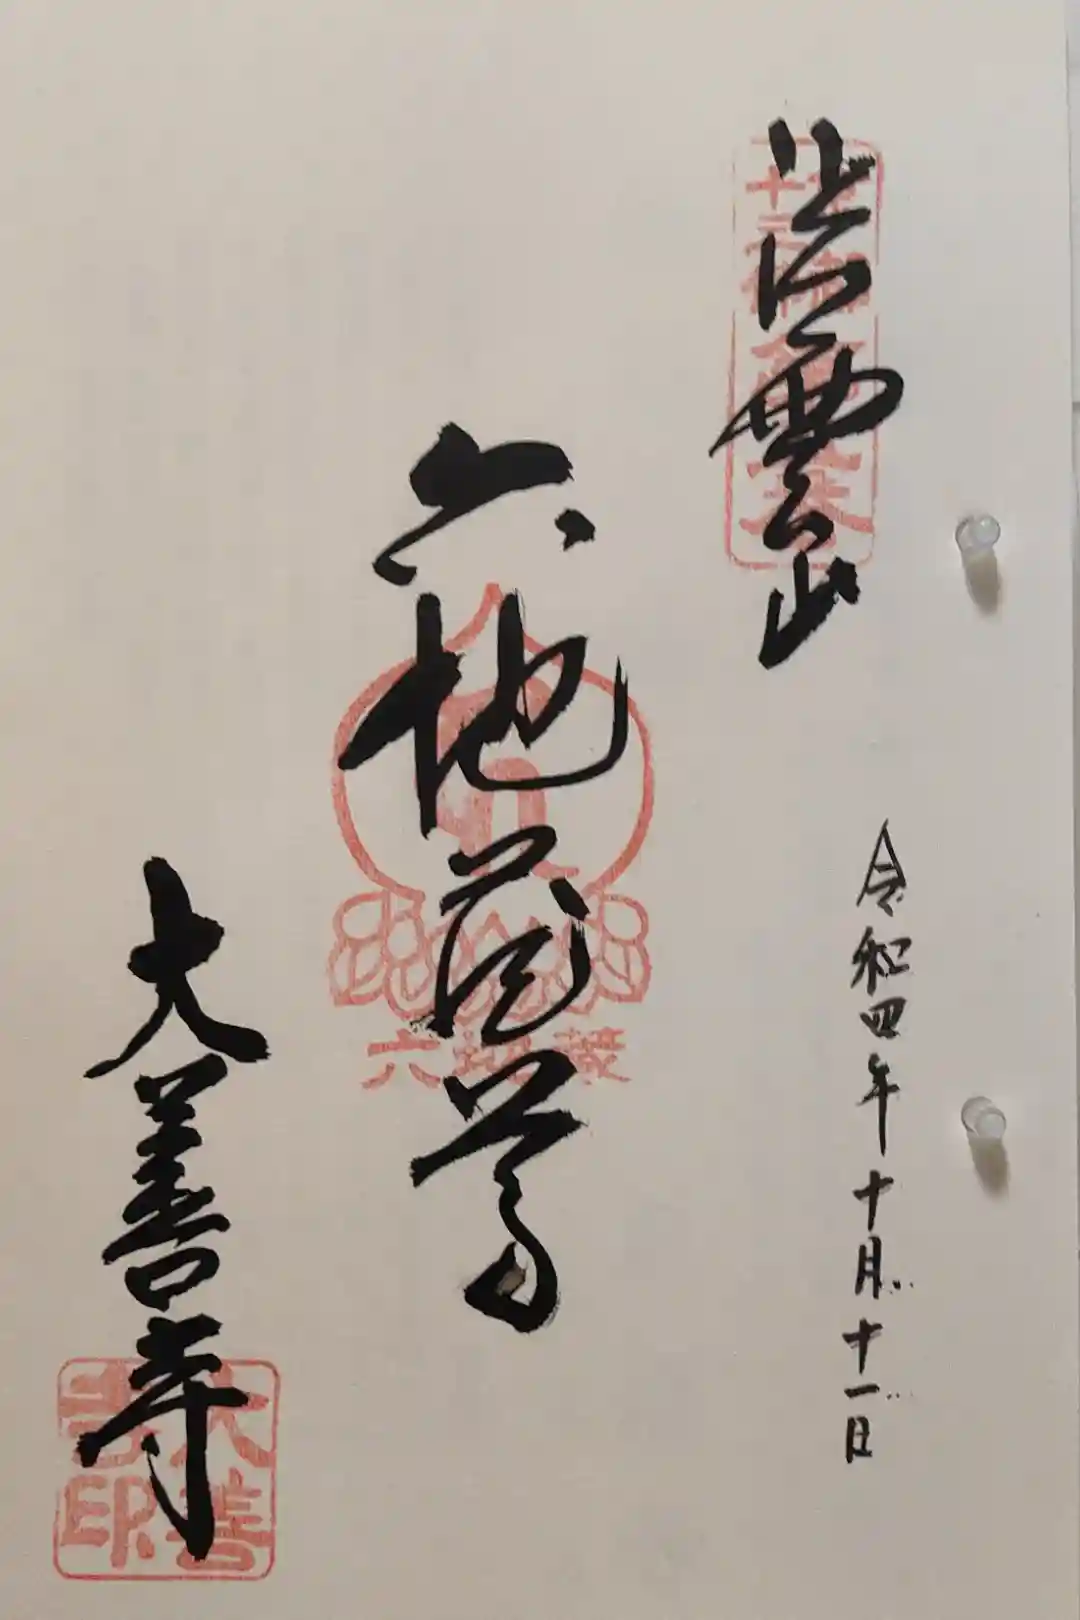 紫雲山
令和四年十月十一日
六地蔵尊
六地蔵
大善寺
大善寺印